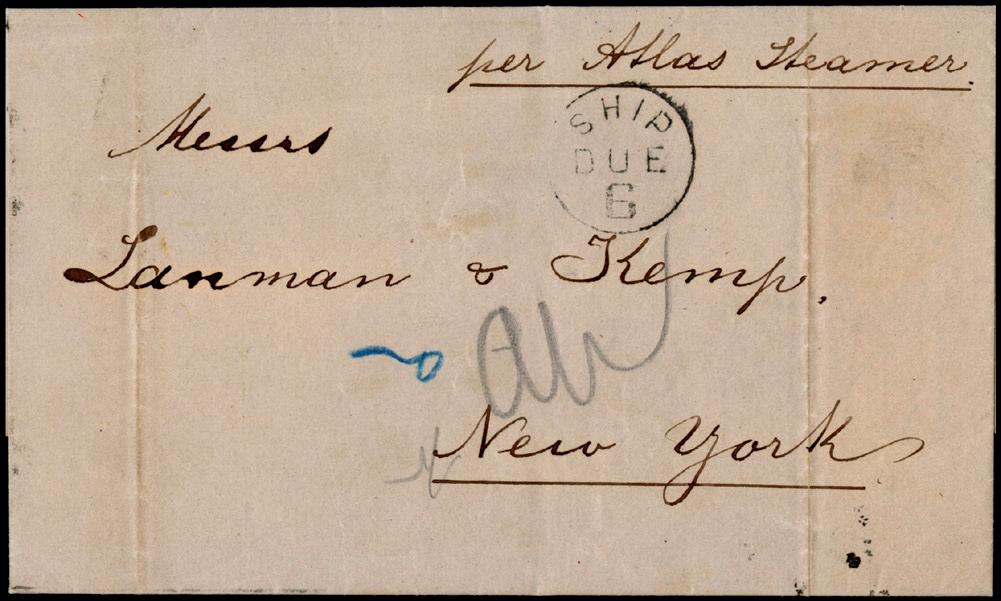 per Atlas Steamer.
Messrs
SHIP
DUE
6
Lanman & Kemp.
New York